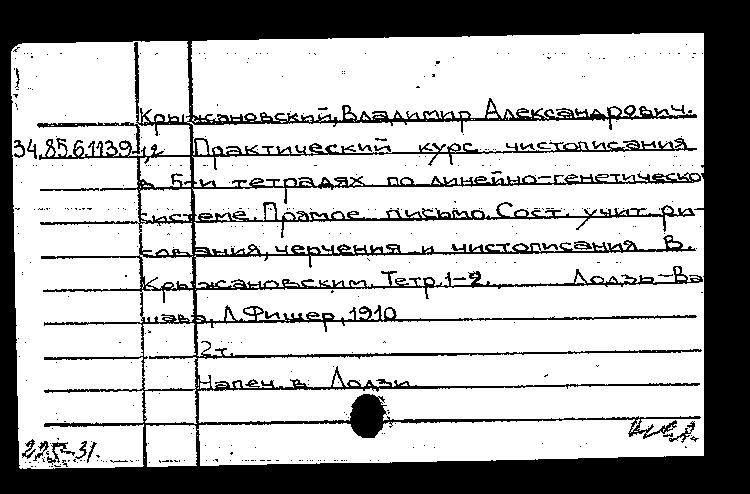 Крыжановский, Владимир Александрович.
34.85.6.1139-1,2 Практический курс чистописания
в 5-и тетрадях по линейно-генетическо
системе. Прямое письмо. Сост. учит. ри-
сования, черчения и чистописания В.
Крыжановским. Тетр. 1-2. Лодзь-Ва
шава, Л. Фишер, 1910
2 т.
Напеч. в Лодзи
225-31.